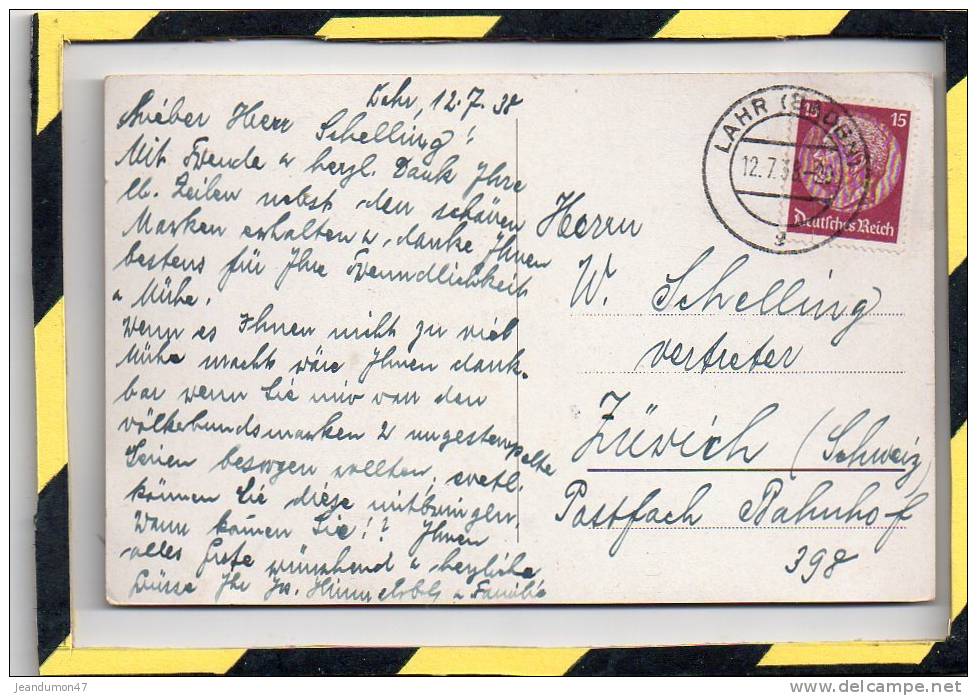 Lahr, 12.7.38
Lieber Herr Schelling!
Mit Freude u herzl. Dank Ihre
lb. Zeilen nebst den schönen
Marken erhalten u. danke Ihnen
bestens für Ihre Freundlichkeit
u Mühe.
Wenn es Ihnen nicht zu viel
Mühe macht wäre Ihnen dank-
bar wenn Sie mir von den
Völkerbundsmarken 2 ungestempelte
Serien besorgen wollten, evetl.
können Sie diese mitbringen.
Wann kommen Sie!? Ihnen
alles Gute wünschend u herzliche
Grüsse Ihr u Familie
LAHR (BADEN)
12.7.38
g
15
15
Deutsches Reich
Herrn
W. Schelling
Vertreter
Zürich (Schweiz)
Postfach Bahnhof
398
jeandumon47
delcampe.net